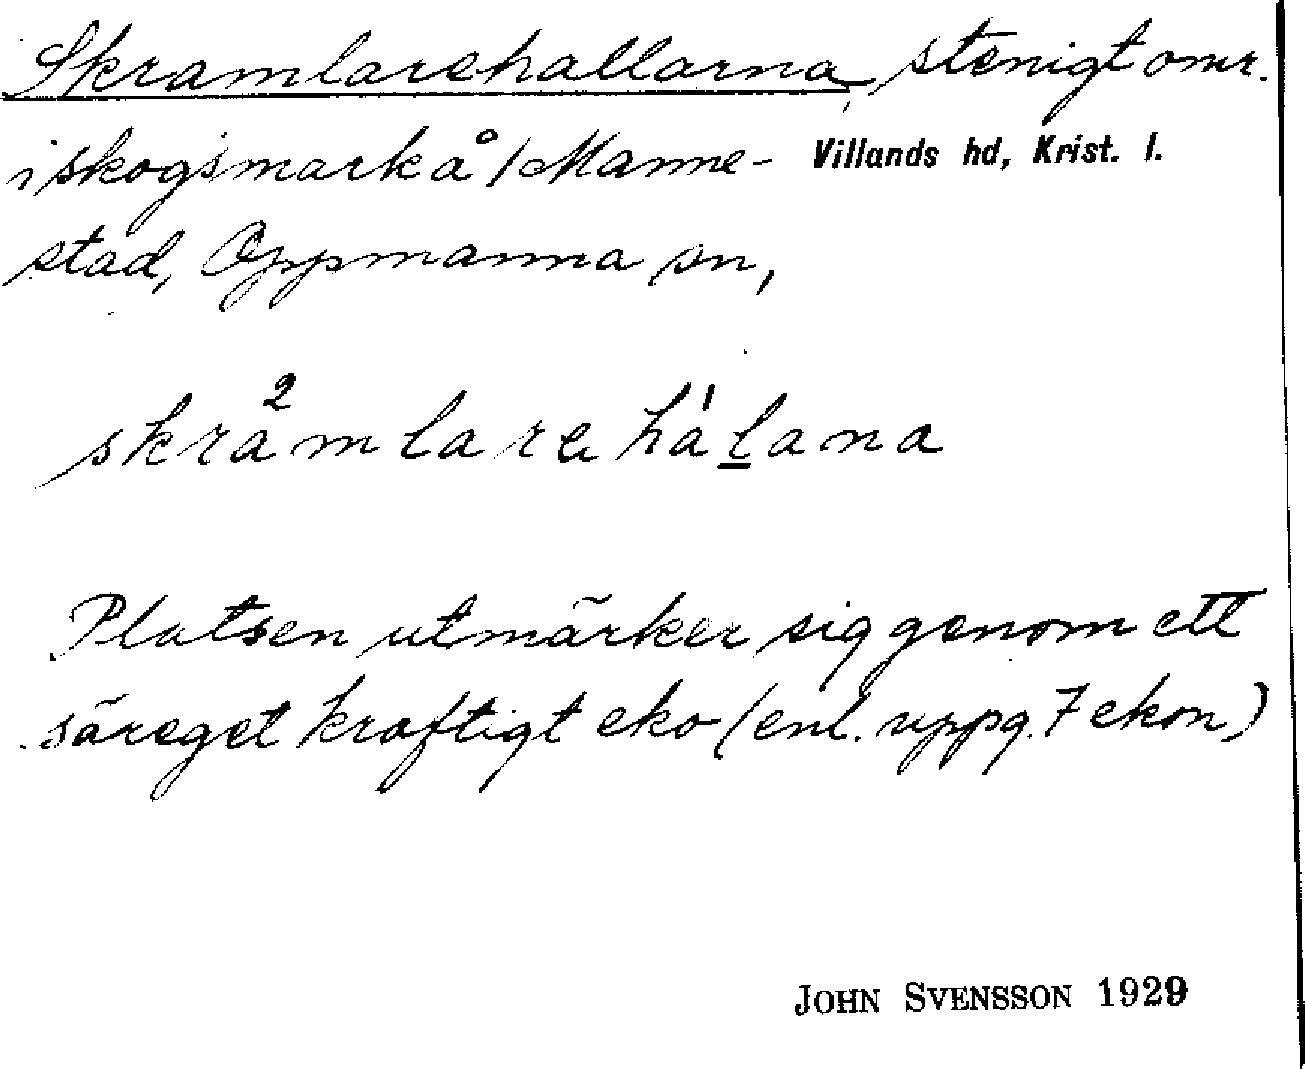 Skramlarehallarna, stenigt omr.
i skogsmark å / Manne-
Villands hd, Krist. l.
stad, Oppmanna sn,
skra²mlare há'l̲ana
Platsen utmärker sig genom ett
säreget kraftigt eko (enl. uppg. 7 ekon)
JOHN SVENSSON 1929